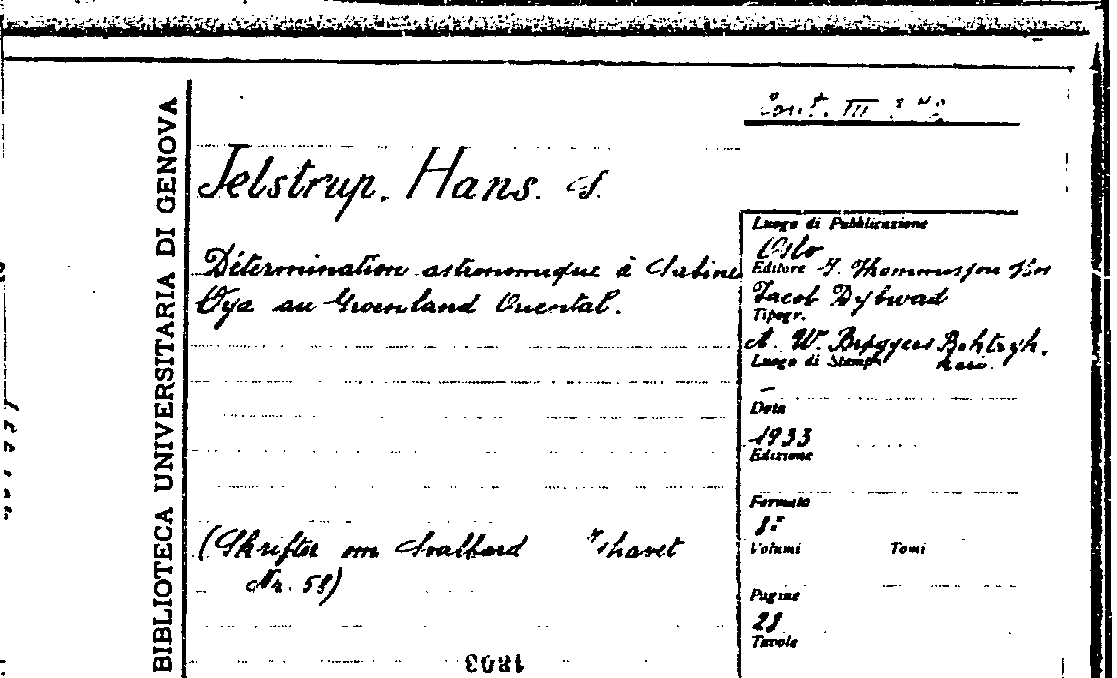 BIBLIOTECA UNIVERSITARIA DI GENOVA
Cont. III
Jelstrup, Hans. S.
Détermination astronomique à Sabine
Öya au Groenland Oriental.
(Skrifter om Svalbard Ishavet
Nr. 58)
1803
Luogo di Pubblicazione
Oslo
Editore
Jacob Dybwad
Tipogr.
A. W. Brøggers Boktryk.
Luogo di Stampa
—
Data
1933
Edizione
Formato
8°
Volumi Tomi
Pagine
28
Tavole